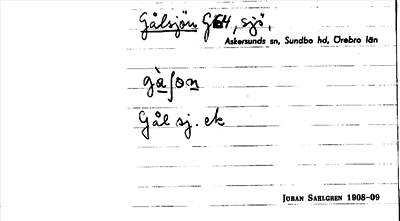 Gålsjön G64, sjö,
Askersunds sn, Sundbo hd, Örebro län
gàʃon
Gål sj. ek
Juran Sahlgren 1908-09